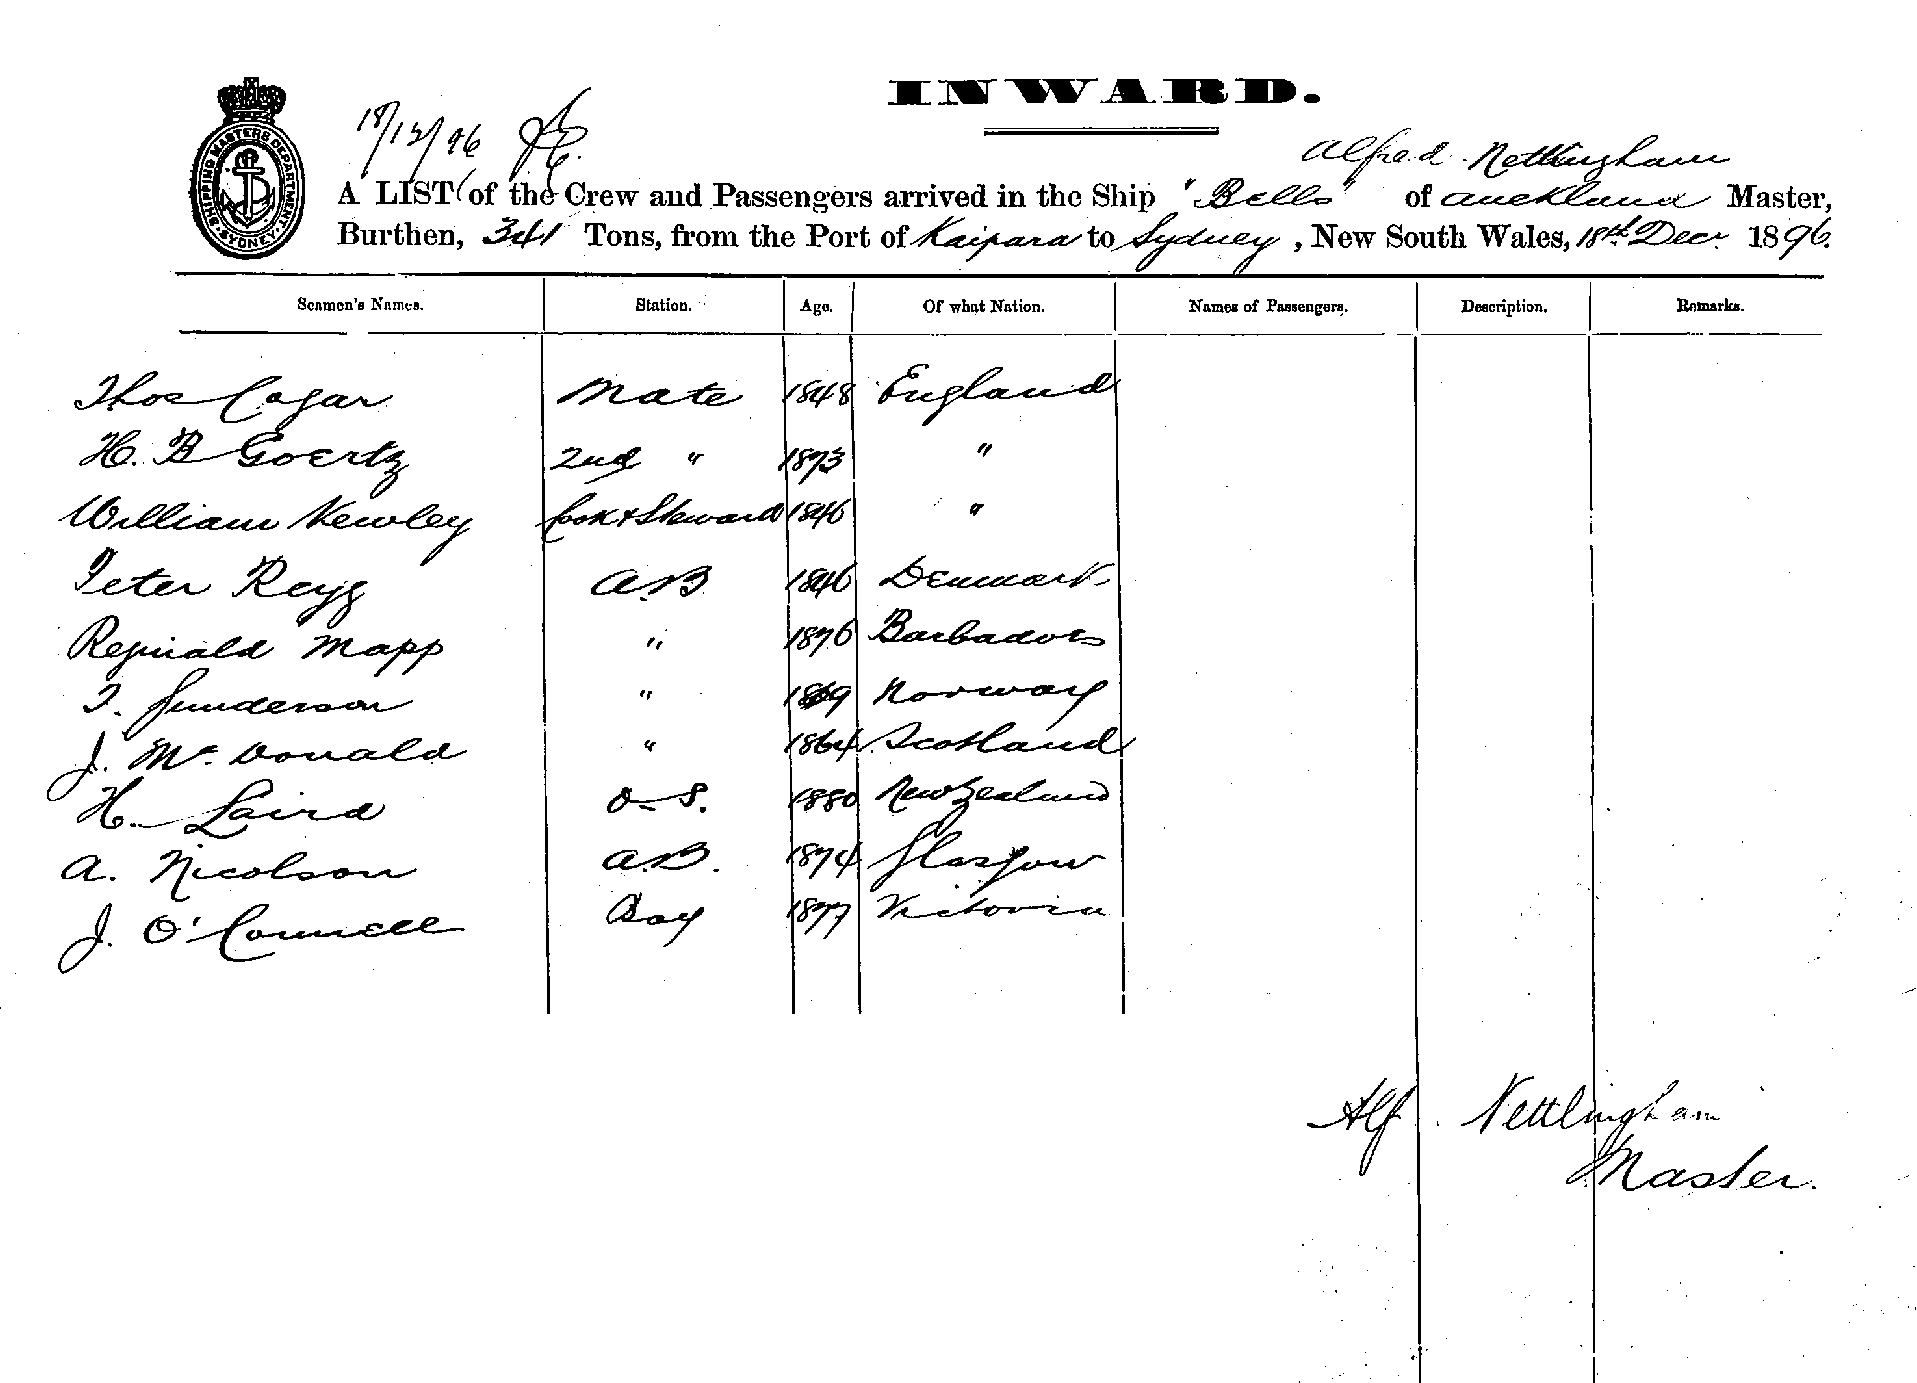 INWARD.
18/12/96
SHIPPING MASTERS DEPARTMENT. SYDNEY.
Alfred Nettlingham
A LIST of the Crew and Passengers arrived in the Ship "Bells" of Auckland Master,
Burthen, 341 Tons, from the Port of Kaipara to Sydney, New South Wales, 18th Decr. 1896.
Seamen's Names. Station. Age. Of what Nation. Names of Passengers. Description. Remarks.
Thos Cogar Mate 1848 England
H. B Goertz 2nd " 1873 "
William Kewley Cook & Steward 1846 "
Peter A.B 1846 Denmark
Reginald Mapp " 1876 Barbadoes
T. Gunderson " 1869 Norway
J. Mc. Donald " 1864 Scotland
H. Laird O-S. 1880 New Zealand
A. Nicolson A.B. 1874 Glasgow
J. O'Connell Boy 1877 Victoria
Alf. Nettlingham
Master.